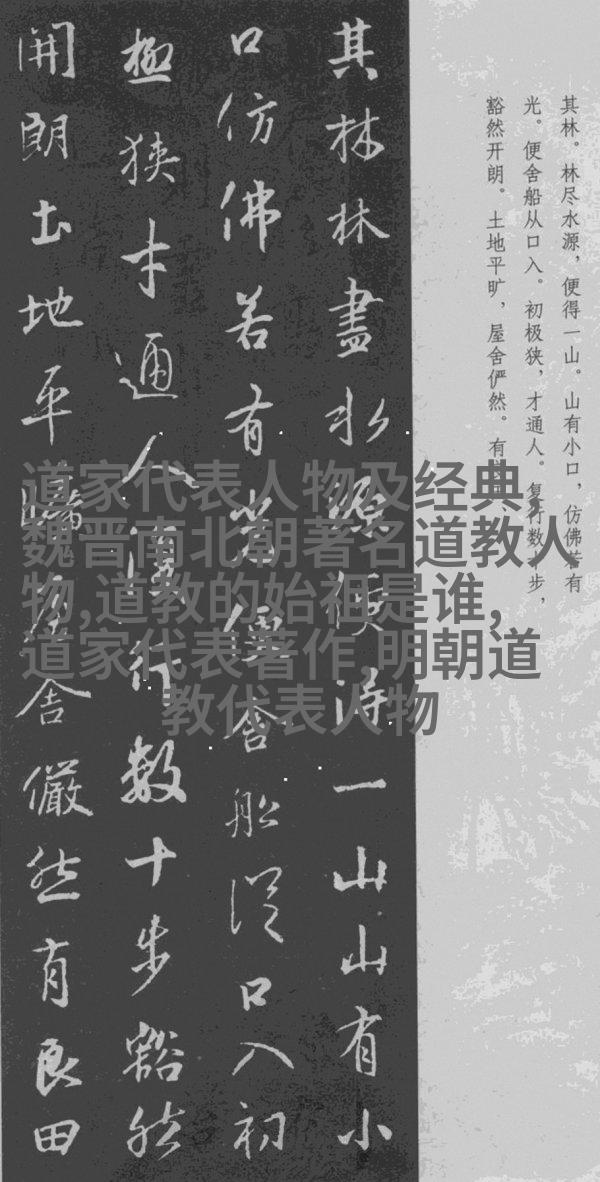 其林。林尽水源，便得一山。山有小口，仿佛若有
光。便舍船从口入。初极狭，才通人。复行数十步，
豁然开朗。土地平旷，屋舍俨然。有
其林林盡水源便得一山山有小
口仿佛若有光便舍船從口入初
極狹才通人復行數十步豁然
開朗土地平曠屋舍儼然有良田
道家代表人物及经典,
魏晋南北朝著名道教人
物,道教的始祖是谁,
道家代表著作 明朝道
教代表人物